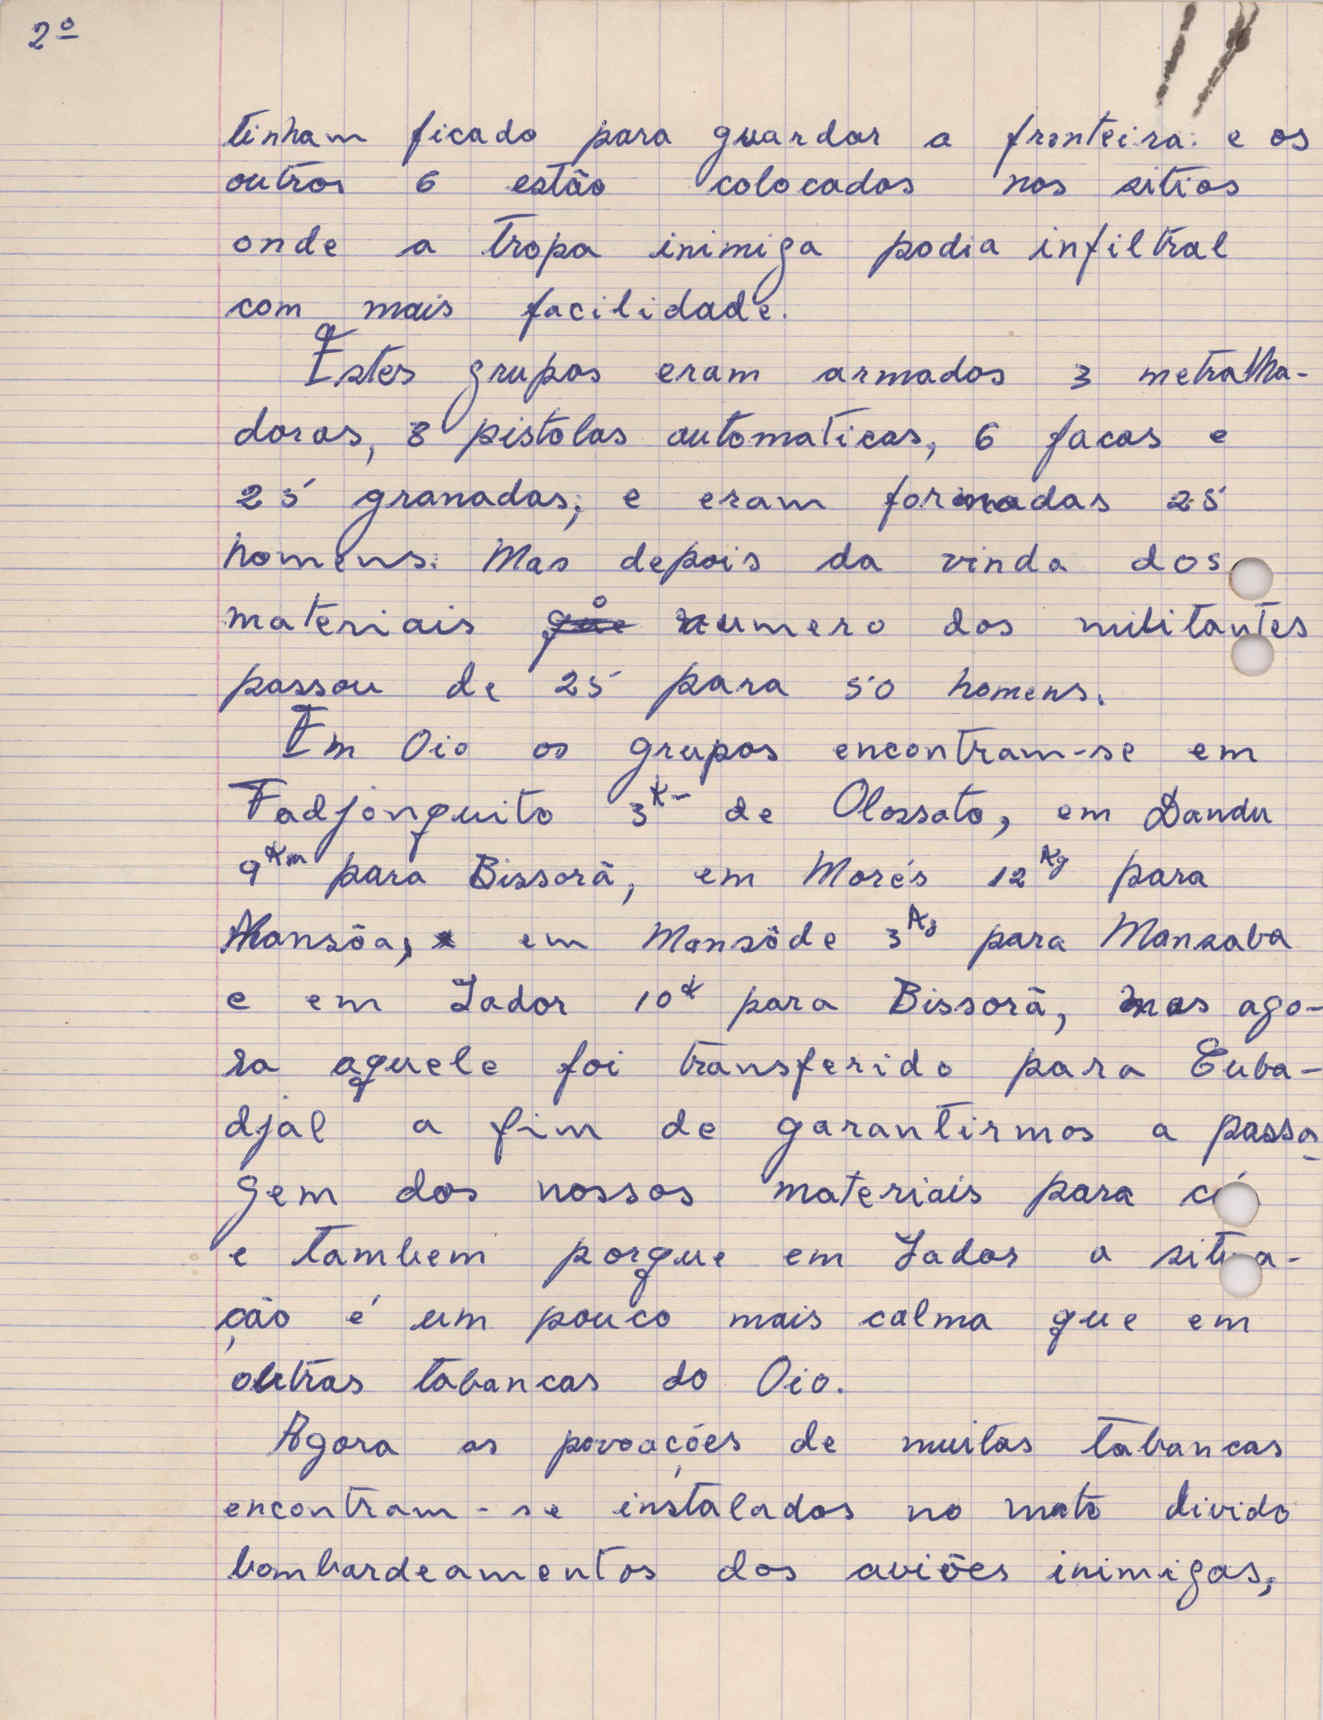 2º
tinham ficado para guardar a fronteira: e os
outros 6 estão colocados nos sitios
onde a tropa inimiga podia infiltral
com mais facilidade.
Estes grupos eram armados 3 metralha-
doras, 3 pistolas automaticas, 6 facas e
25 granadas; e eram formadas 25
homens. Mas depois da vinda dos
materiais que o numero dos militantes
passou de 25 para 50 homens.
Em Oio os grupos encontram-se em
Fadjonquito 3K- de Olossato, em Dandu
9Km para Bissorã, em Morés 12Kg para
Mansõa, em Mansôde 3Kg para Mansaba
e em Jador 10K para Bissorã, mas ago-
ra aquele foi transferido para Cuba-
djal a fim de garantirmos a passa-
gem dos nossos materiais para cá
e tambem porque em Jador a situa-
ção é um pouco mais calma que em
outras tabancas do Oio.
Agora as povoações de muitas tabancas
encontram-se instalados no mato divido
bombardeamentos dos aviões inimigos,